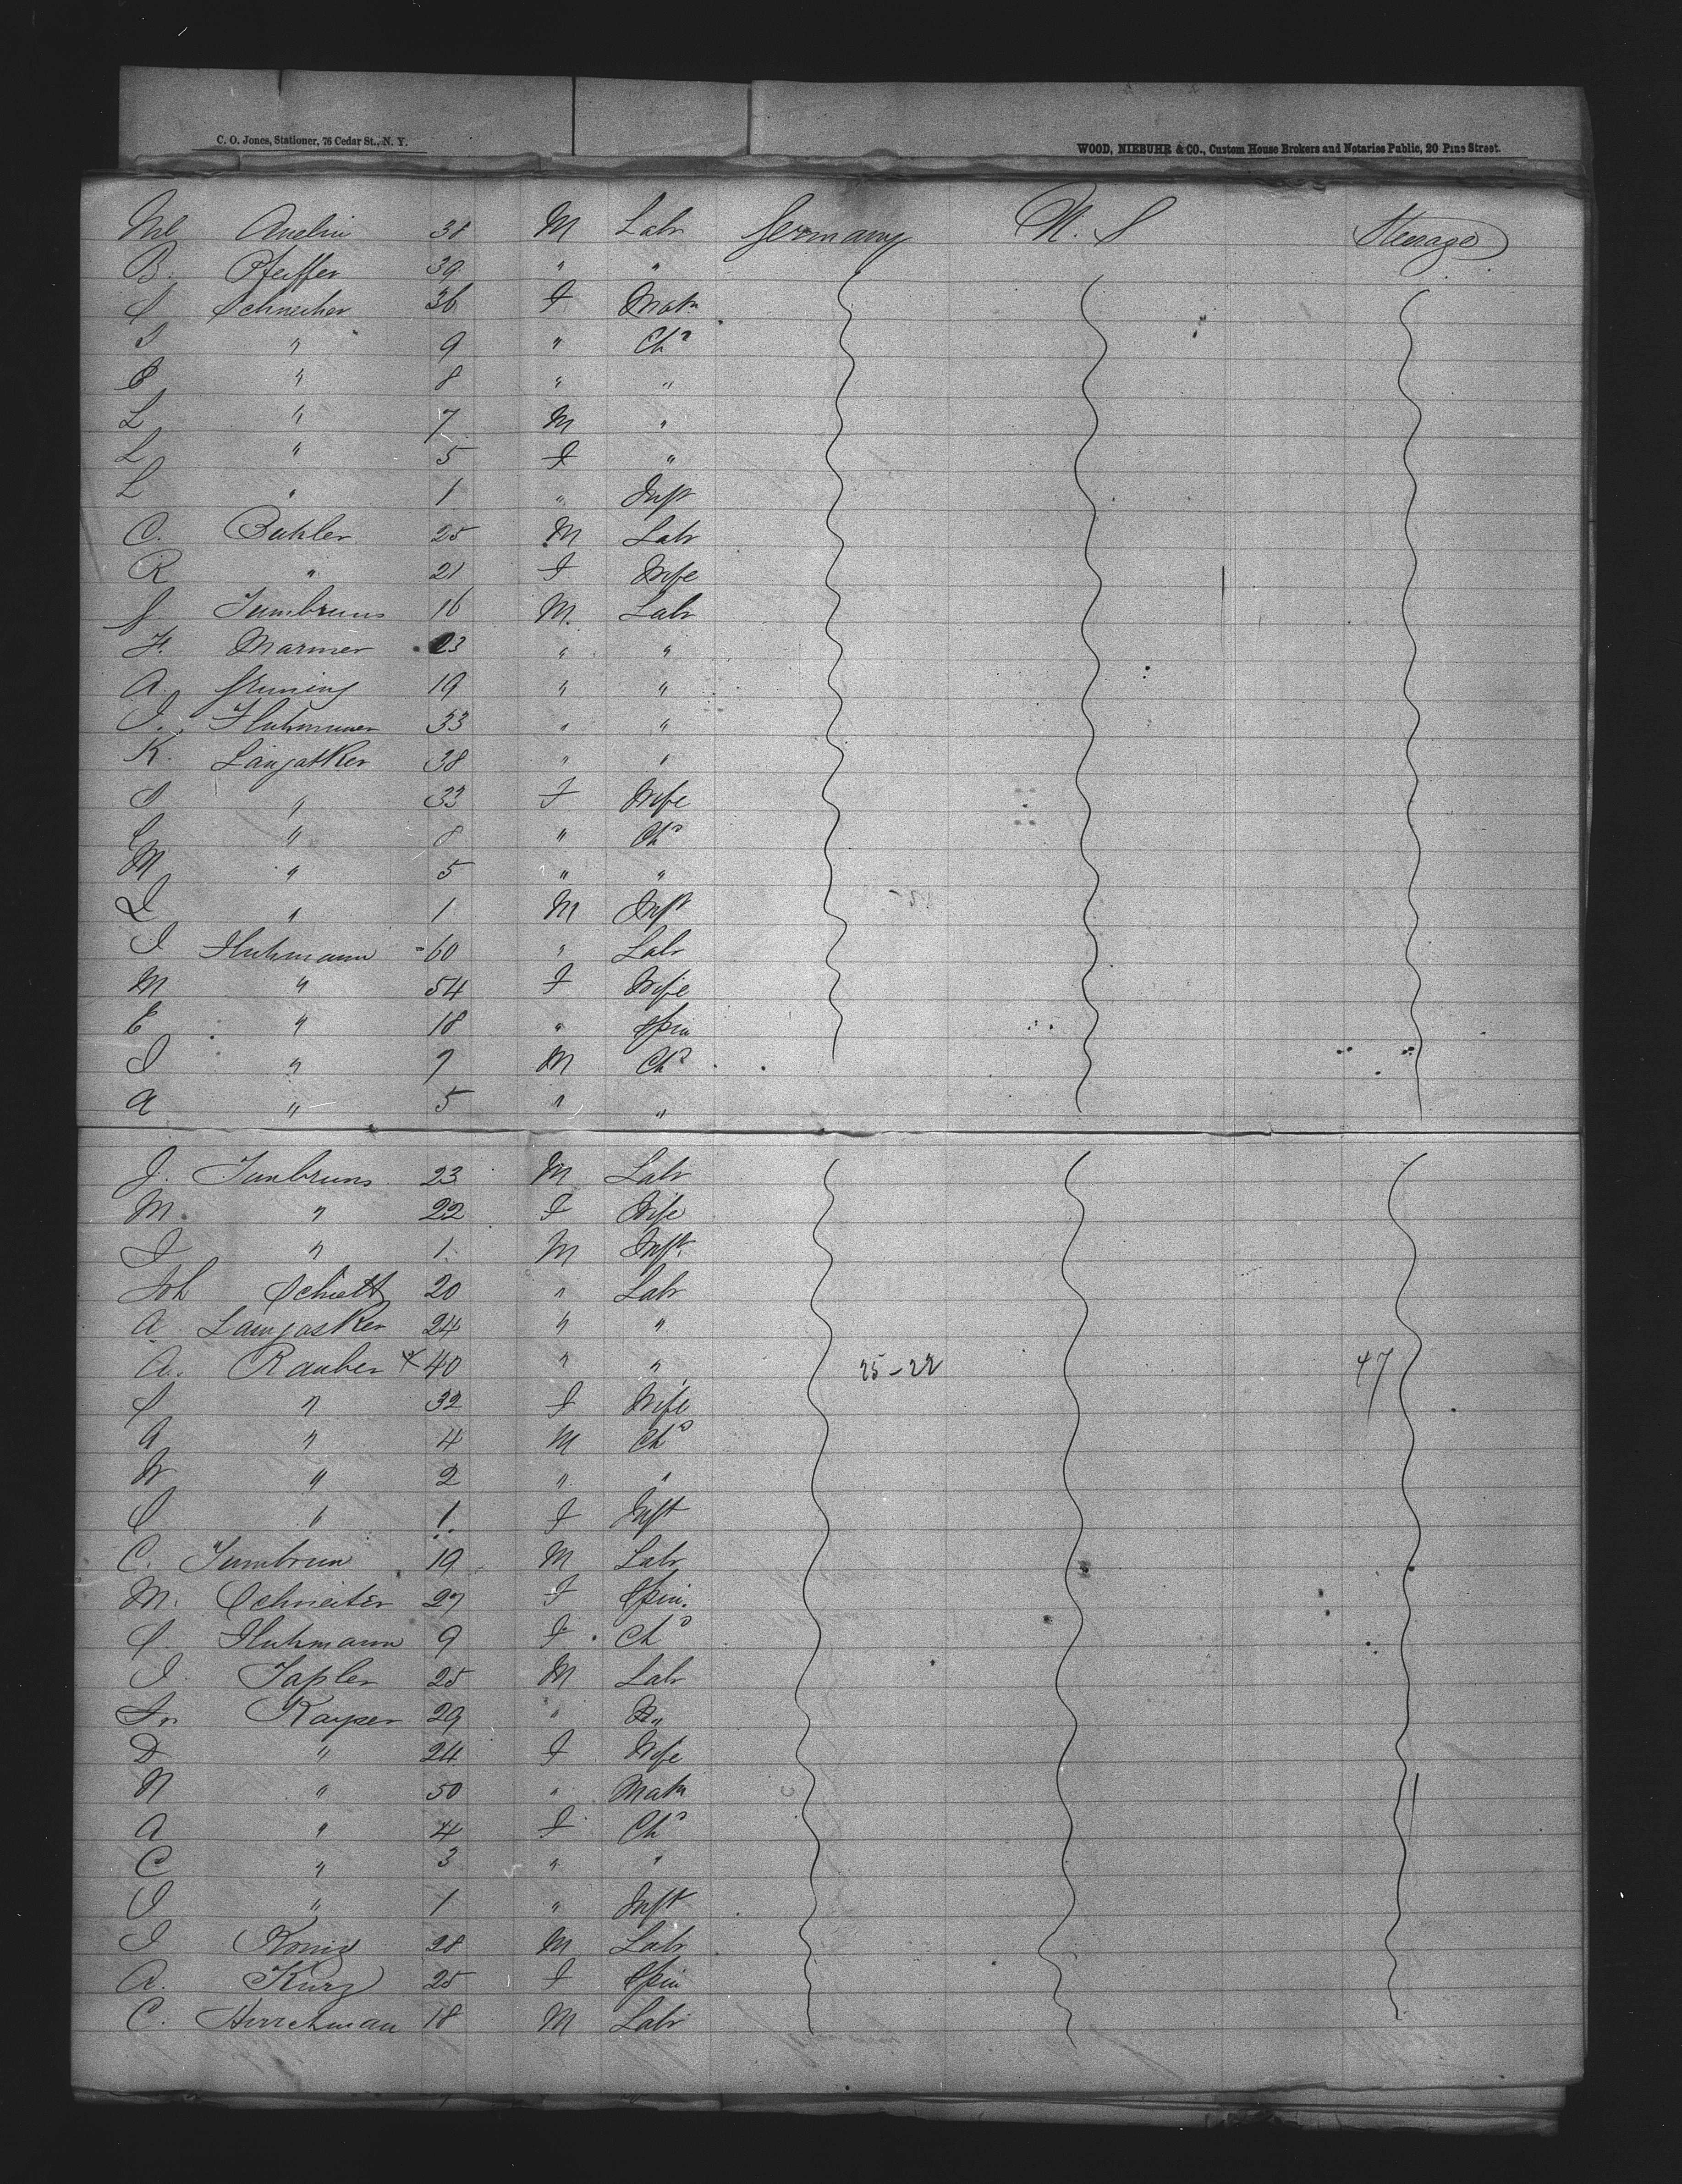 C. O. Jones, Stationer, 76 Cedar St., N. Y.
WOOD, NIEBUHR & CO., Custom House Brokers and Notaries Public, 20 Pine Street.
38 M Labr Germany U. S Steerage
B. Pfeiffer 39 " "
S Schneiher 36 F Matn
S " 9 " Chd
" 8 " "
L " 7 M "
L " 5 F "
L " 1 " Inft
C. Buhler 25 M Labr
R " 21 F Wife
J. Jumbruns 16 M. Labr
F. Marmer 23 " "
A. Gruning 19 " "
I. 33 " "
K. Langasker 38 " "
S " 33 F Wife
" 8 " Chd
M " 5 " "
" 1 M Inft
I Fluhmann 60 " Labr
M " 54 F Wife
E " 18 " Spin
I " 7 M Chd
A " 5 " "
J. Jumbruns 23 M Labr
M. " 22 F Wife
I " 1 M Inft
Joh Schutt 20 " Labr
A. Langasker 24 " "
A. Rauber x 40 " " 25-22 47
S " 32 F Wife
A " 4 M Chd
W " 2 " "
S " 1 F Inft
C. Jumbrun 19 M Labr
M. Schneiter 27 F Spin.
S. Fluhmann 9 F Chd
I. Japler 25 M Labr
Fr Kayser 29 " "
D " 24 F Wife
N " 50 " Matn
A " 4 F Chd
C " 3 " "
" 1 " Inft
I Konig 28 M Labr
A. Kurz 25 F Spin
C. Hirrchman 18 M Labr